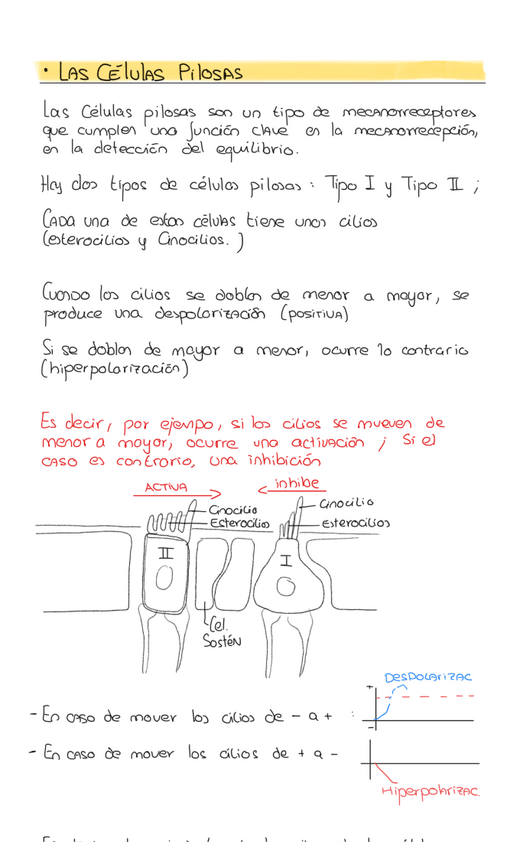 · LAS CÉLULAS PILOSAS
Las Células pilosas son un tipo de mecanorreceptores
que cumplen una función clave en la mecanorrecepción,
en la detección del equilibrio.
Hay dos tipos de células pilosas : Tipo I y Tipo II ;
CADA una de estas células tiene unos cilios
(esterocilios y Cinocilios. )
Cuando los cilios se doblan de menor a mayor, se
produce una despolarización (positiva)
Si se doblan de mayor a menor, ocurre lo contrario
(hiperpolarización)
Es decir, por ejemplo, si los cilios se mueven de
menor a mayor, ocurre una activación ; Si el
caso es contrario, una inhibición
ACTIVA
inhibe
Cinocilio
Esterocilio
Cinocilio
Esterocilios
II
I
Cel.
Sostén
DesPolarizac
+
-
- En caso de mover los cilios de - a + :
- En caso de mover los cilios de + a -
Hiperpolarizac.